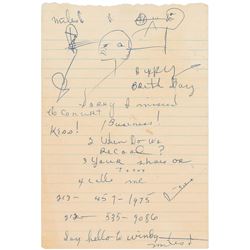 miles
Happy
Birth Day
Sorry I missed
the concert
Kiss! / Business!
2 When Do we
Record?
3 Your show or
4 Call me
212- 459-1975
535-9086
Say hello to
miles